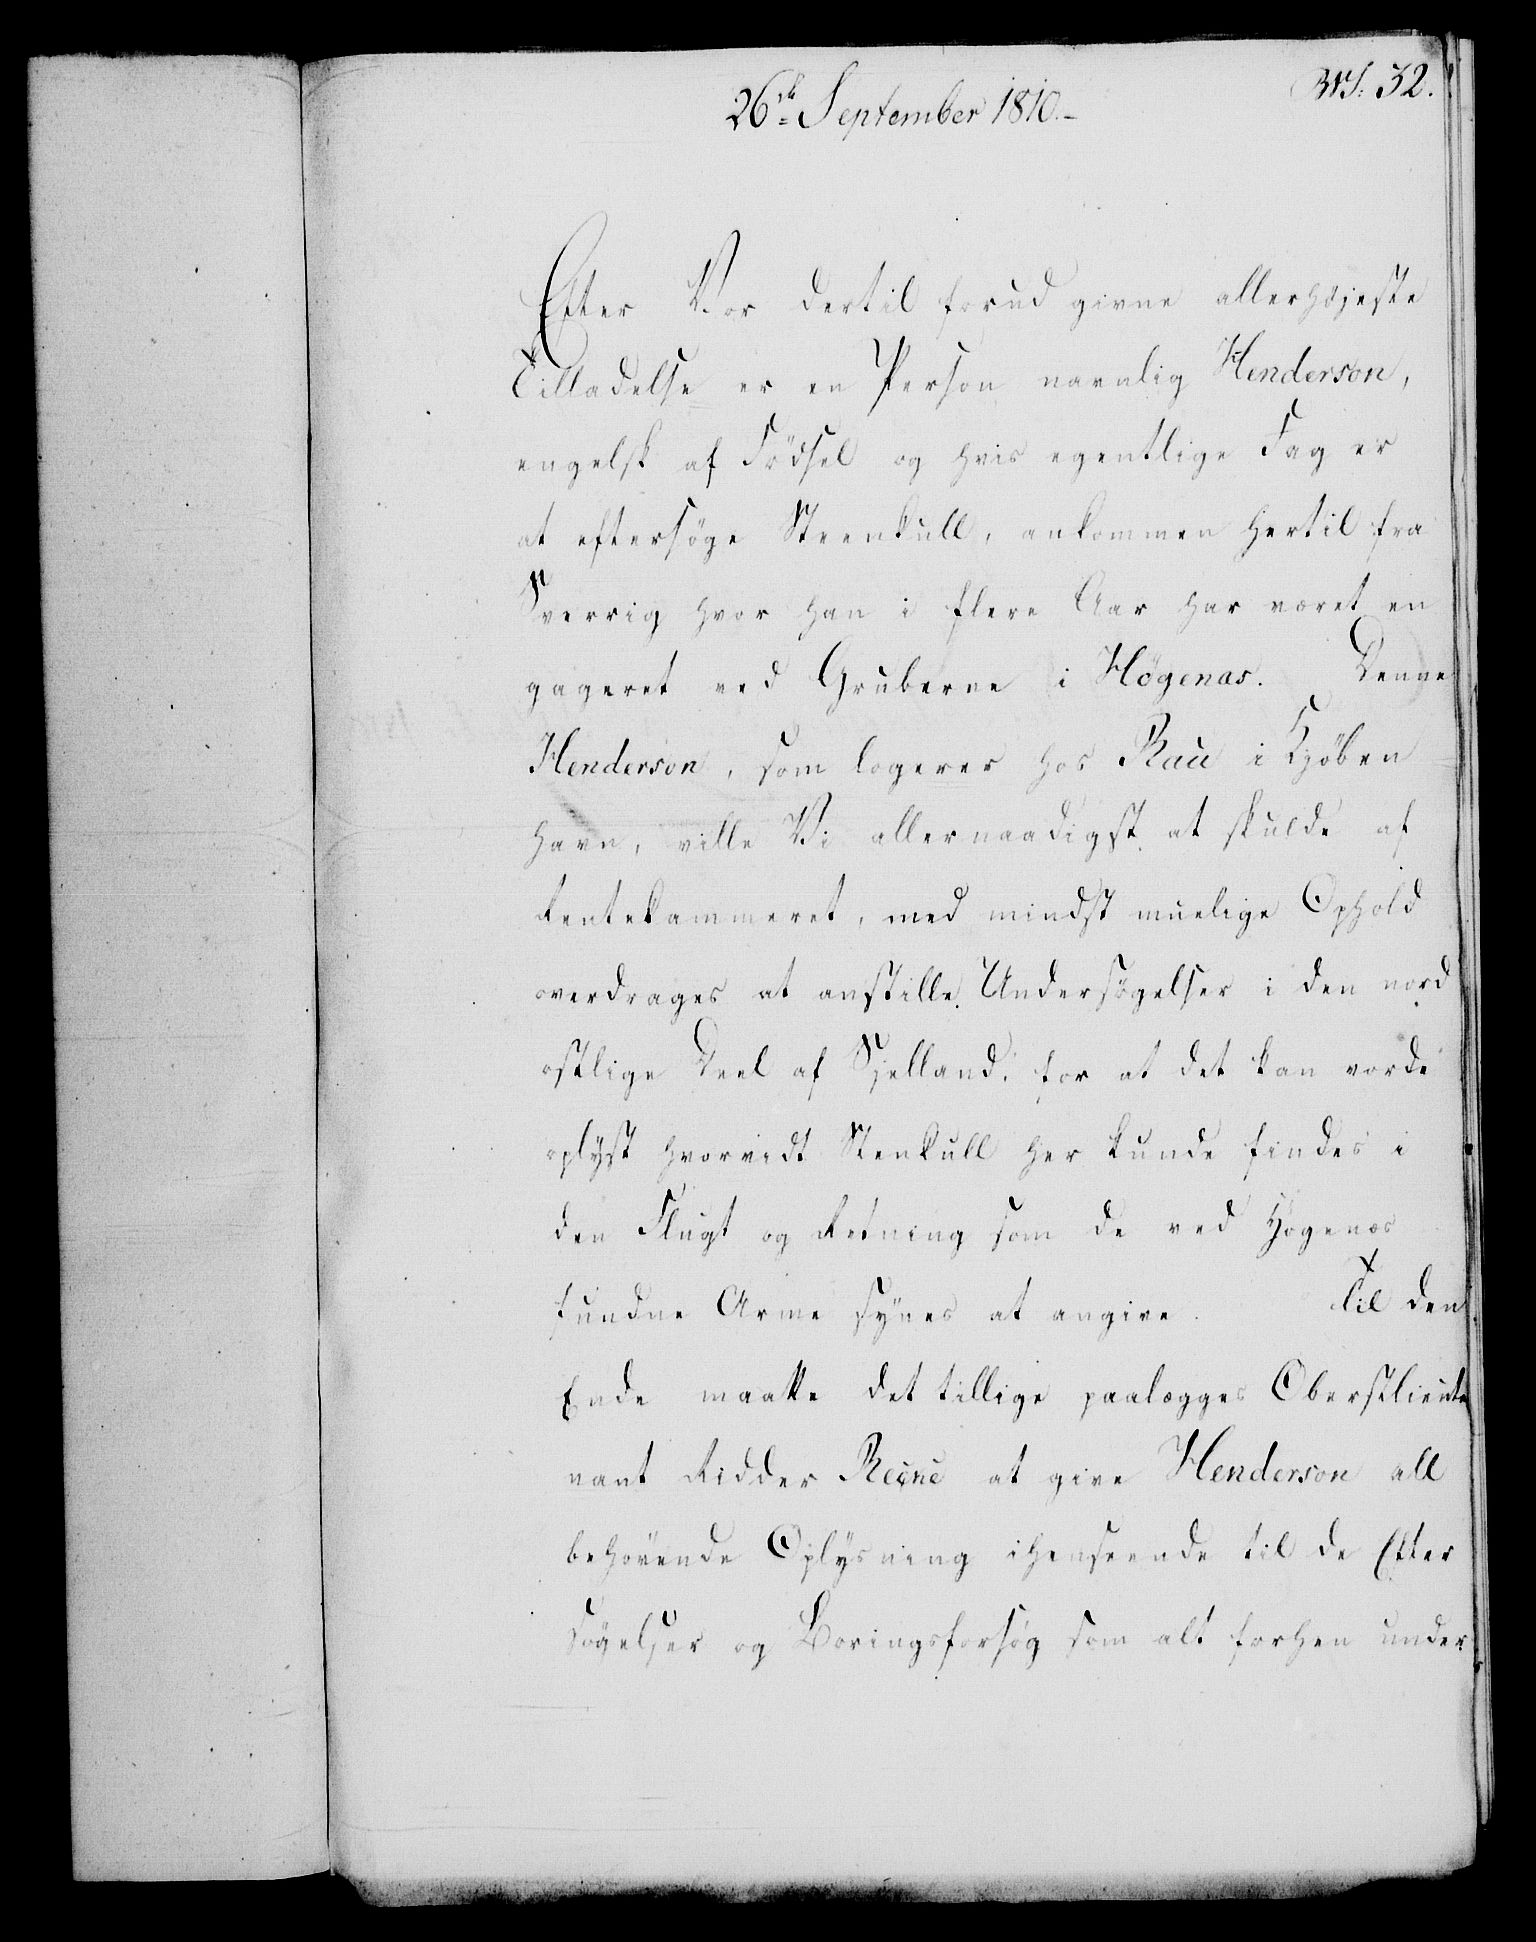 26de September 1810.-
32.
Efter Vor dertil forud givne allerhöjeste
Tilladelse er en Person navnlig Henderson,
engelsk af Födsel og hvis egentlige Fag er
at eftersöge Steenkull, ankommen hertil fra
Sverrig hvor han i flere Aar har været en
gageret ved Gruberne i Högenas. Denne
Henderson, som logerer hos Rau i Kjöben
havn, ville Vi allernaadigst at skulde af
Rentekammeret, med mindst muelige Ophold
overdrages at anstille Undersögelser i den nord
ostlige Deel af Sjelland, for at det kan vorde
oplyst hvorvidt Stenkull her kunde findes i
den Flugt og Retning som de ved Högenæs
fundne Arme synes at angive. Til den
Ende maatte det tillige paalægges Oberstlieute
nant Ridder at give Henderson all
behövende Oplysning ihenseende til de Efter
sögelser og Boringsforsög som alt forhen under